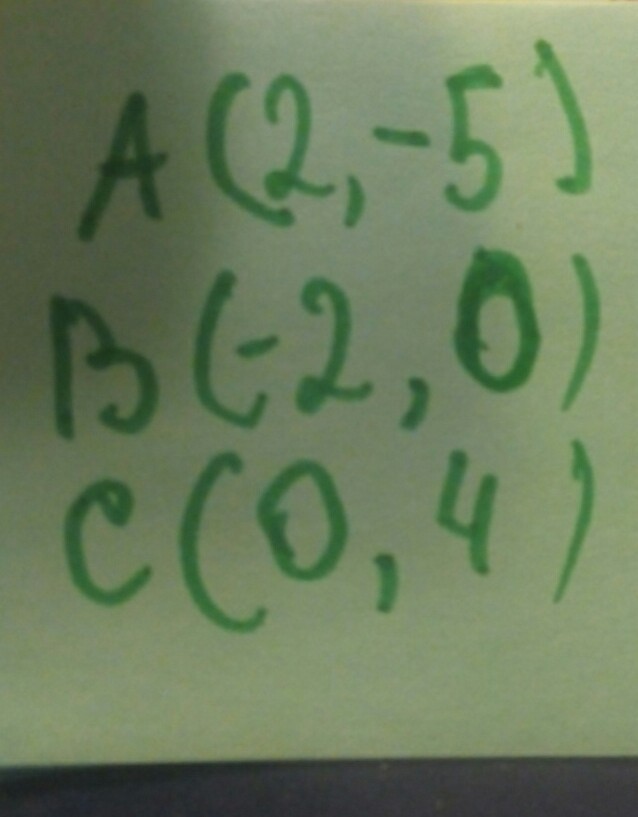 A(2,-5)
B(-2,0)
C(0,4)